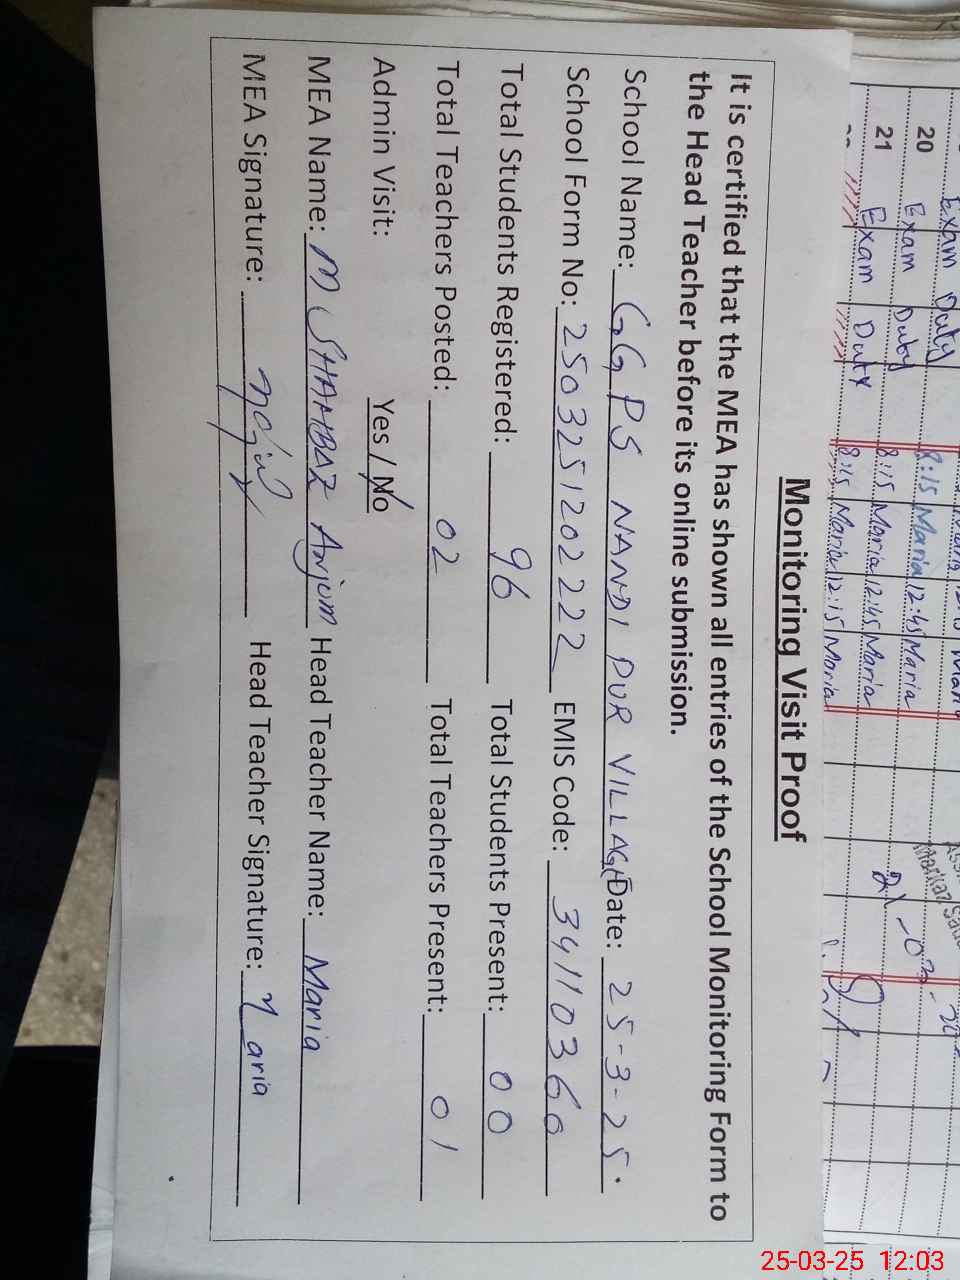 Monitoring Visit Proof
It is certified that the MEA has shown all entries of the School Monitoring Form to
the Head Teacher before its online submission.
School Name: GGPS NANDI PUR VILLAGE Date: 25-3-25
School Form No: 2503251202222 EMIS Code: 34110360
Total Students Registered: 96 Total Students Present: 00
Total Teachers Posted: 02 Total Teachers Present: 01
Admin Visit: Yes / No
MEA Name: M SHAHBAZ Anjum Head Teacher Name: Maria
MEA Signature: Head Teacher Signature: Maria
Exam Duty
20 Exam Duty 8:15 Maria 12:45 Maria
21 Exam Duty 8:15 Maria 12:45 Maria
8:15 Maria 12:15 Maria
25-03-25 12:03